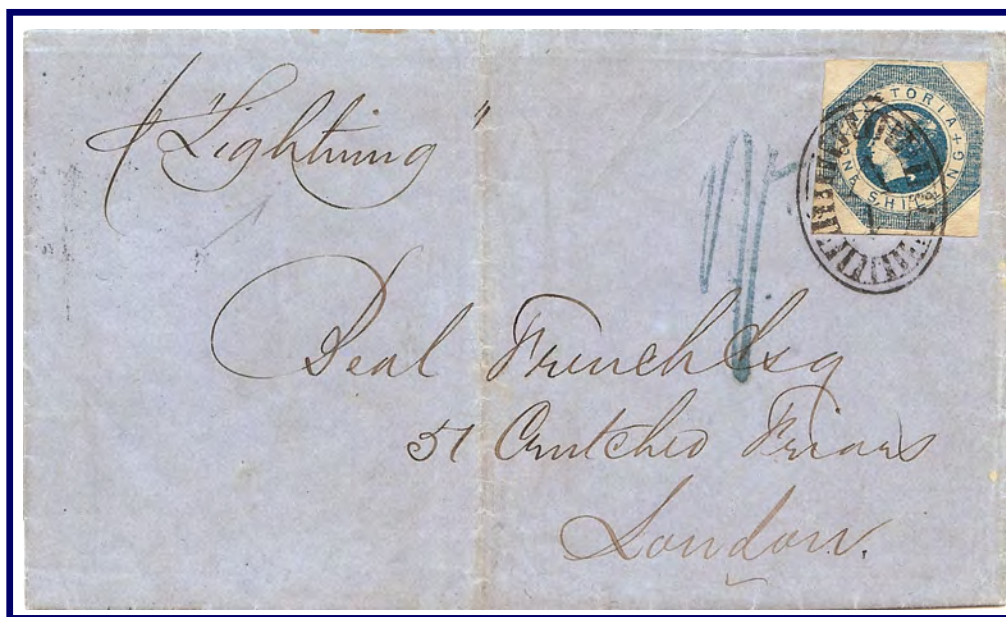 "Lightning"
VICTORIA + ONE SHILLING
Deal French Esq
51 Crutched Friars
London.